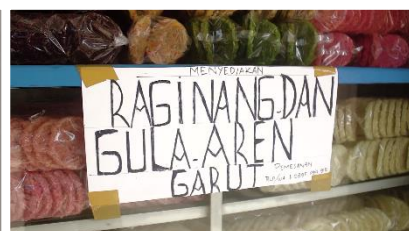 MENYEDIAKAN
RAGINANG-DAN
GULA-AREN
GARUT
PEMESANAN